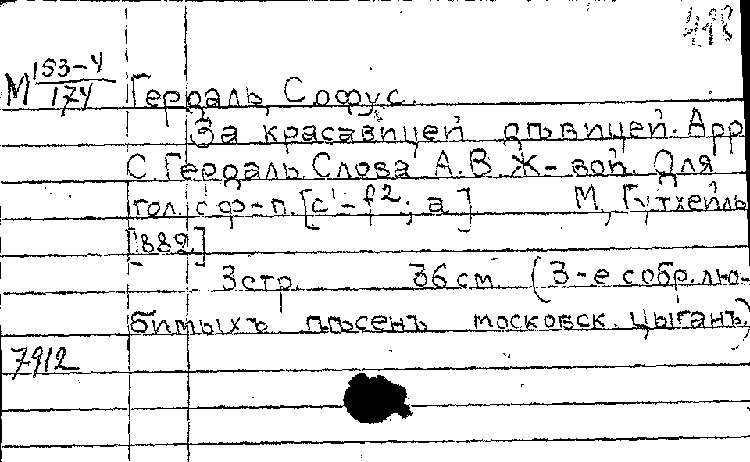 418
М 153-4/174 Гердаль, Софус.
За красавицей дѣвицей. Арр
С. Гердаль Слова А. В. Ж-вой. Для
гол. с ф-п. [c'-f²; a] М, Гутхейль
[1882]
3 стр. 36 см. (3-е собр. лю-
бимыхъ пѣсенъ московск. цыганъ)
7912